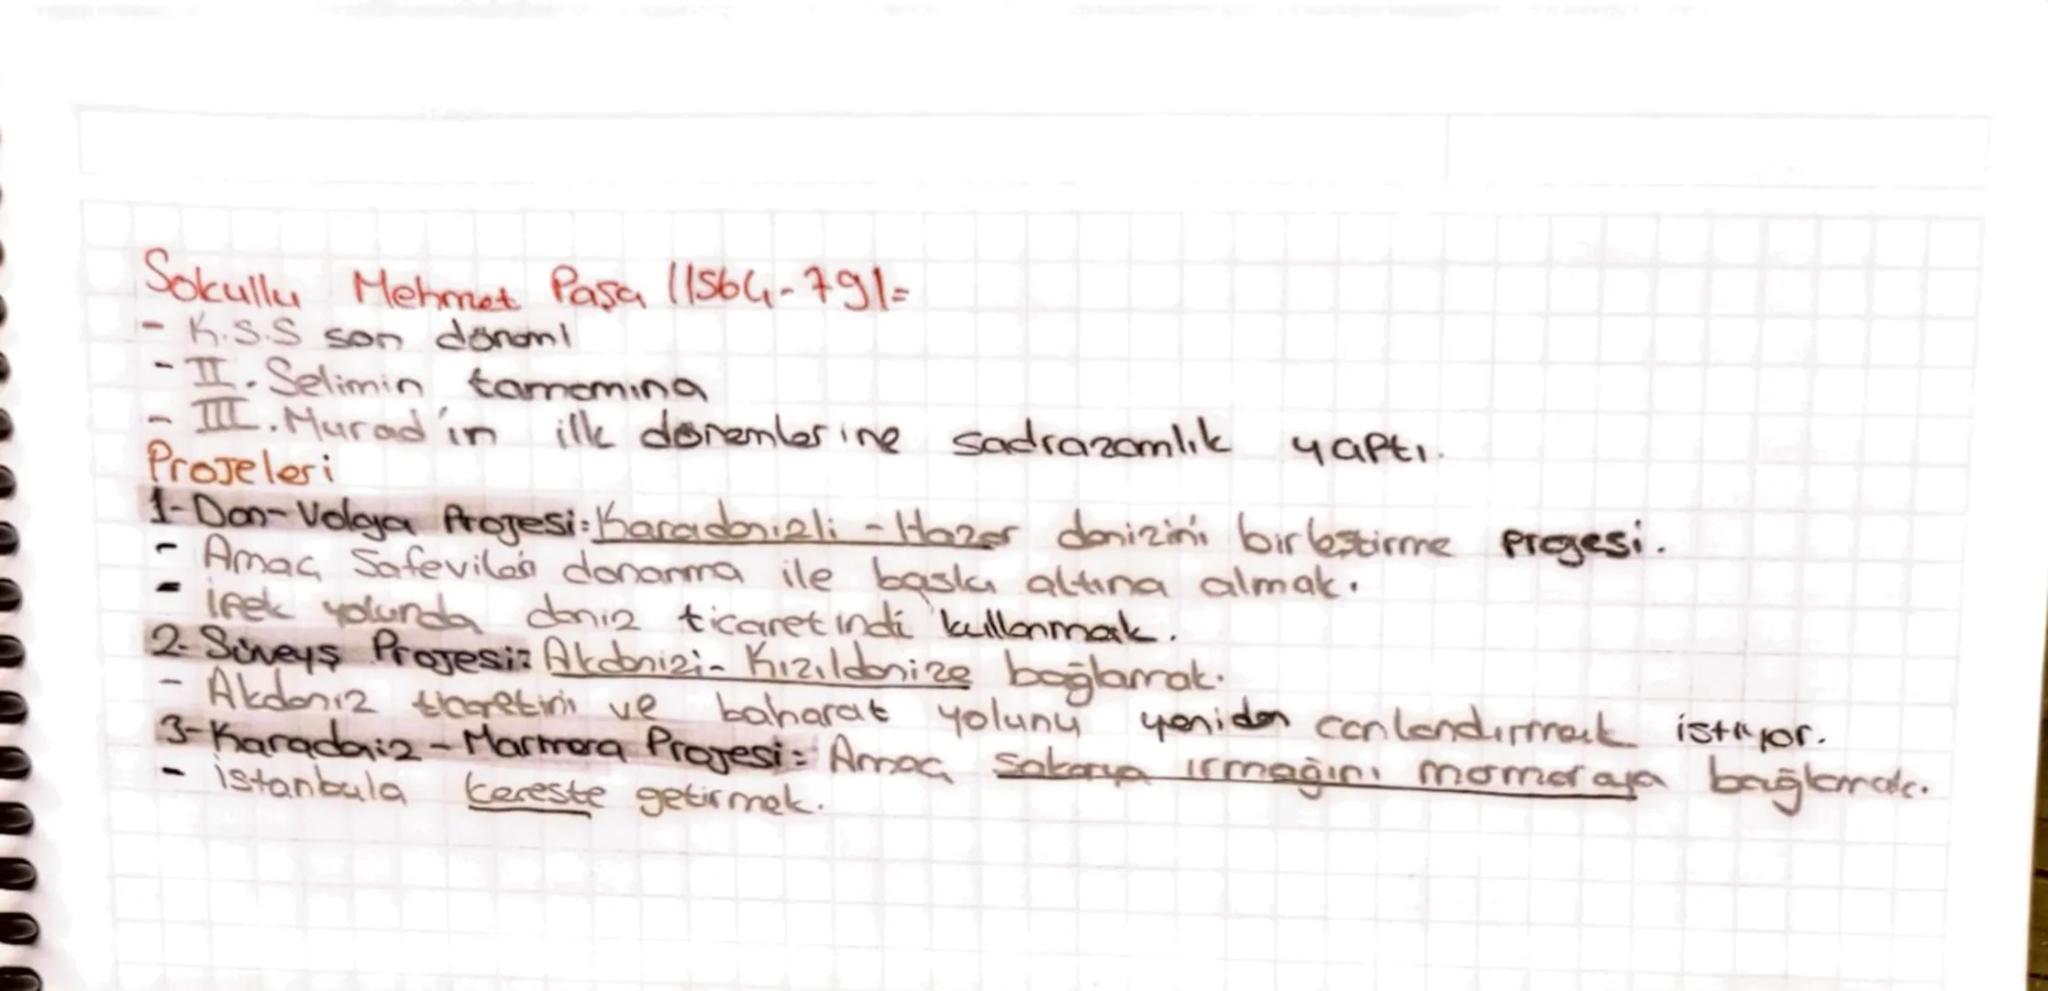 Sokullu Mehmet Paşa (1564-79)=
- K.S.S son dönemi
- II. Selimin tamamına
- III. Murad'ın ilk dönemlerine sadrazamlık yaptı.
Projeleri
1- Don-Volga Projesi: Karadenizli - Hazar denizini birleştirme projesi.
- Amaç Safevileri donanma ile baskı altına almak.
- İpek yolunda deniz ticaretindi kullanmak.
2- Süveyş Projesi: Akdenizi - Kızıldenize bağlamak.
- Akdeniz ticaretini ve baharat yolunu yeniden canlandırmak istiyor.
3- Karadeniz - Marmara Projesi: Amaç Sakarya ırmağını marmaraya bağlamak.
- İstanbula kereste getirmek.